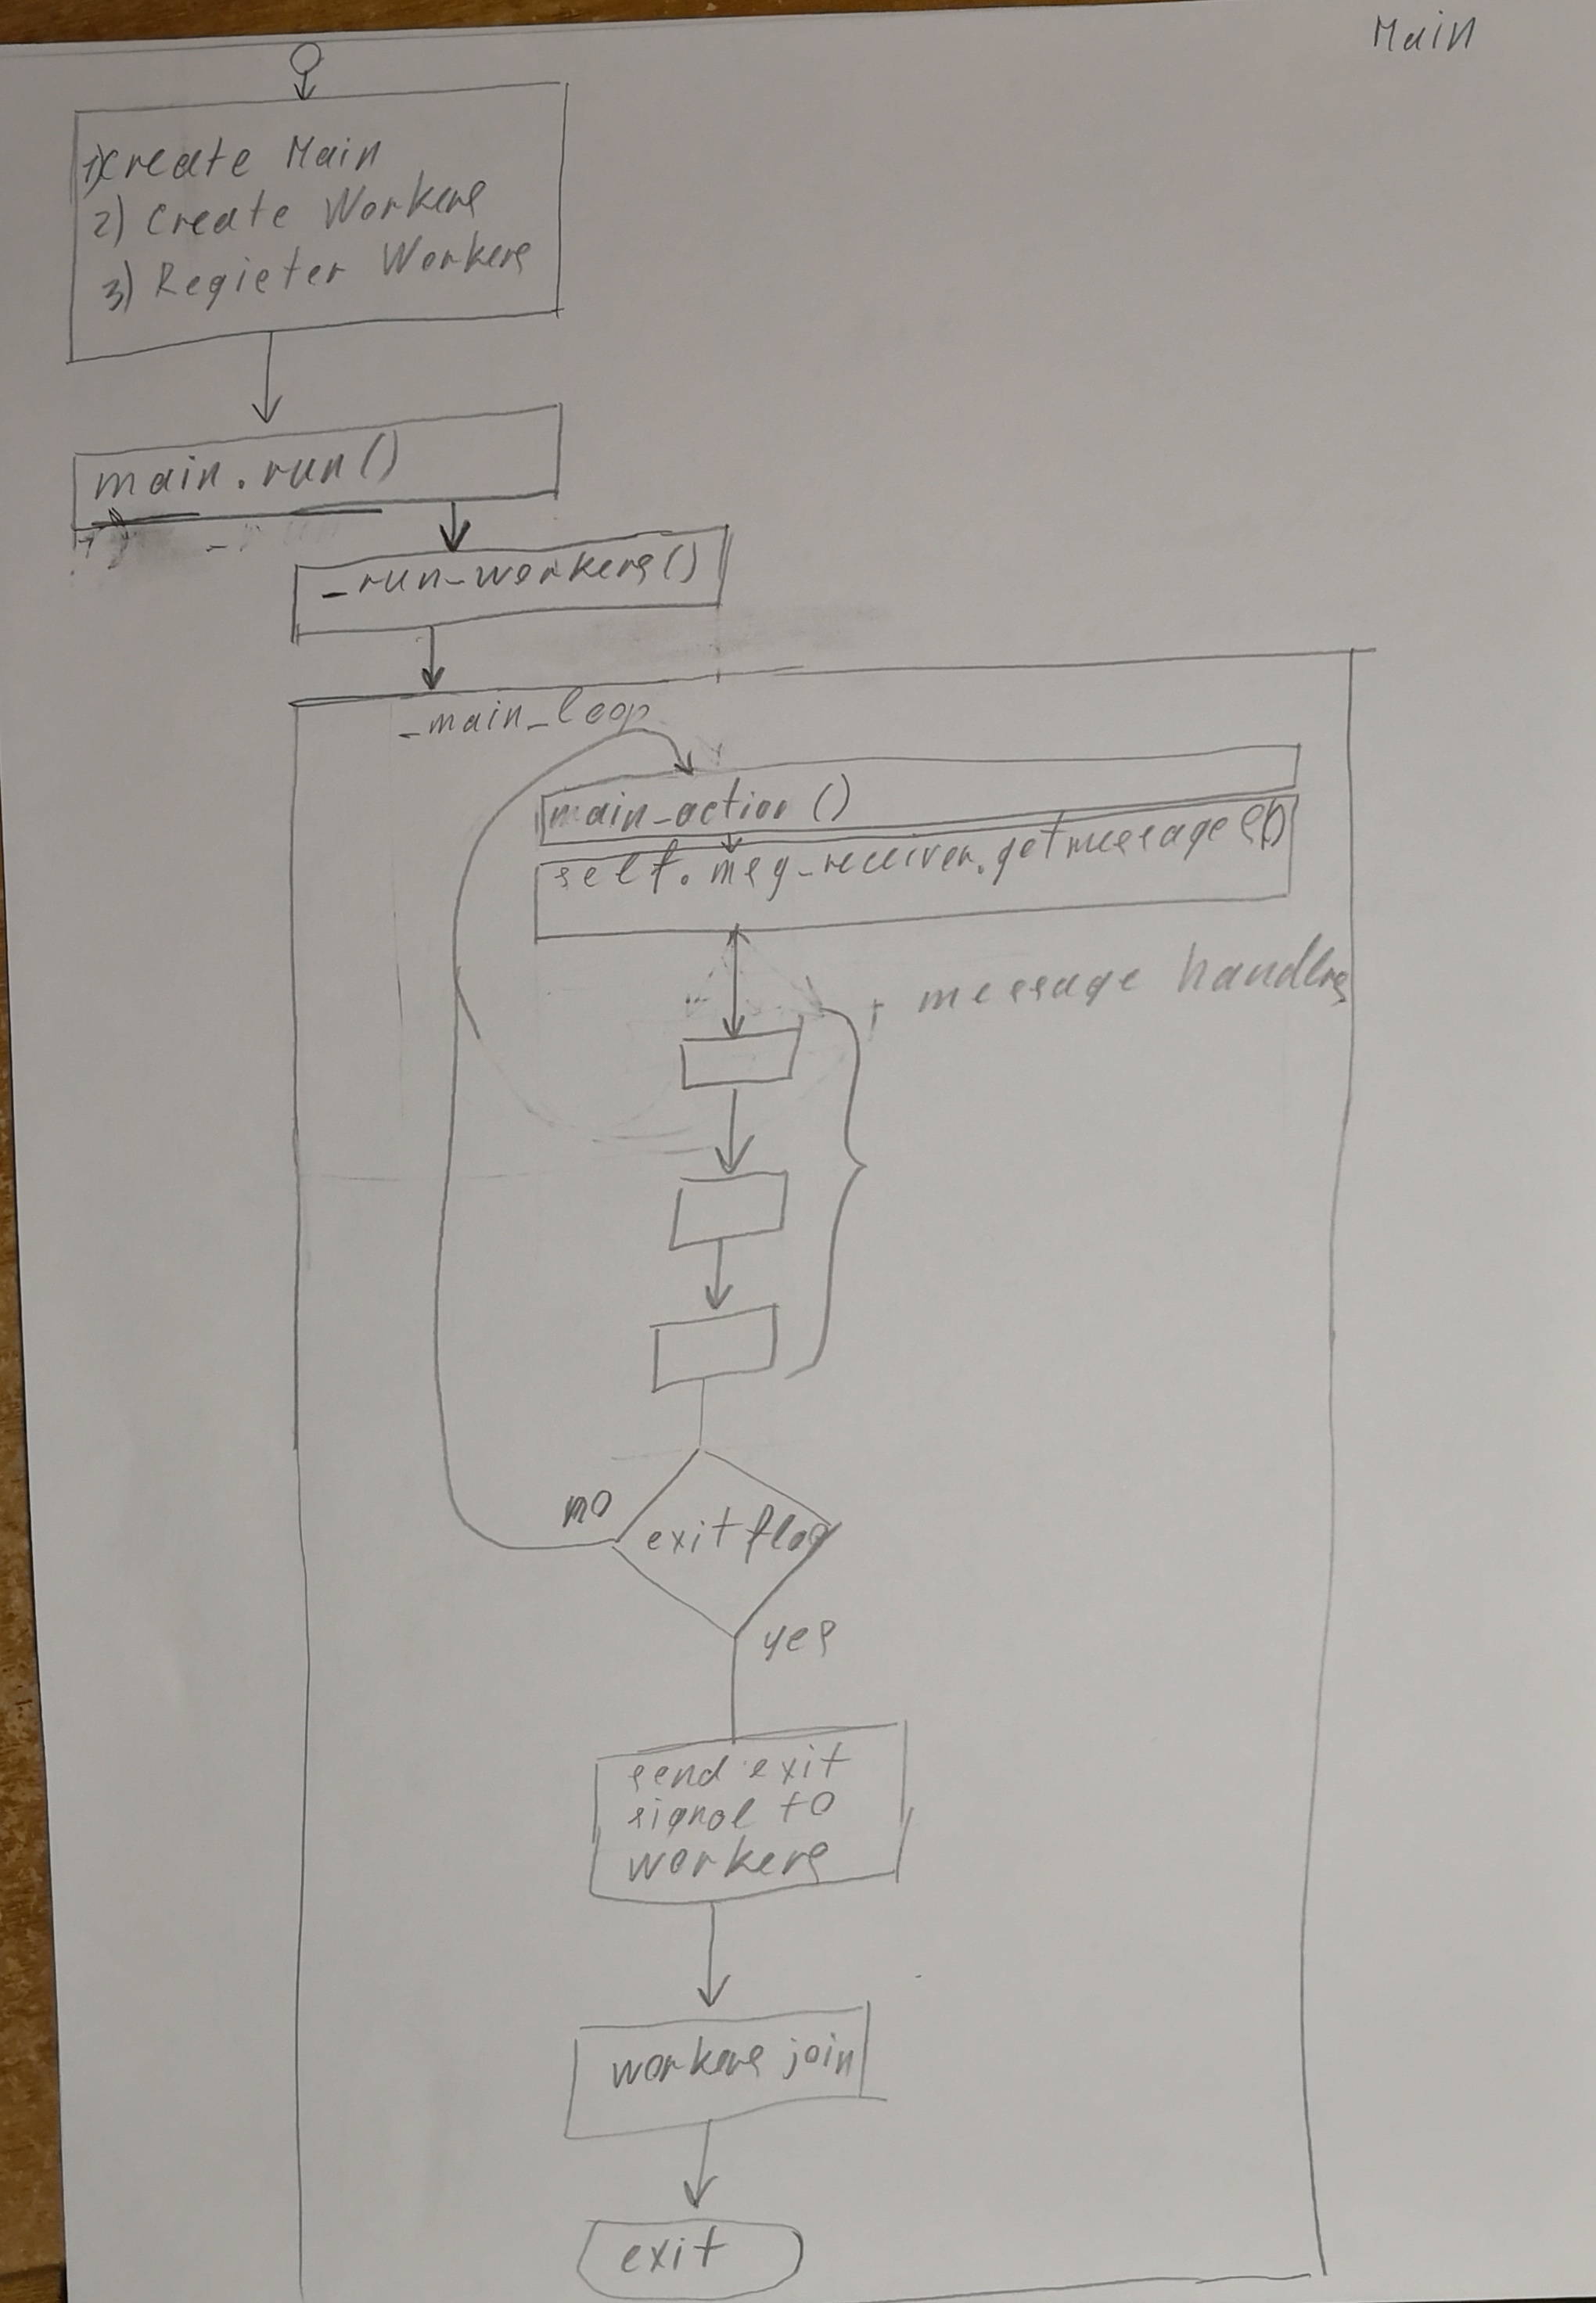 Main
1) Create Main
2) Create Workers
3) Register Workers
main.run()
_run_workers()
_main_loop
main_action()
self.msg_receiver.getmessages()
message handlers
no
exit flag
yes
send exit
signal to
workers
workers join
exit